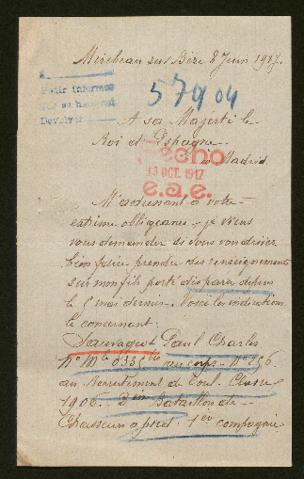 Mirebeau sur Bèze 8 Juin 1917.
57904
Pedir informes
Devolver
A sa Majesté le
Roi d'Espagne
à Madrid.
echo
13 OCT. 1917
e.a.e.
M'adressant à votre
extrême obligeance, je viens
vous demander si vous voudriez
bien faire prendre des renseignements
sur mon fils porté disparu depuis
le 5 mai dernier. Voici les indications
le concernant:
Sauvageot Paul Charles
au Recrutement de Toul. Classe
1906. 2em Bataillon de
Chasseurs à pied. 1ère compagnie